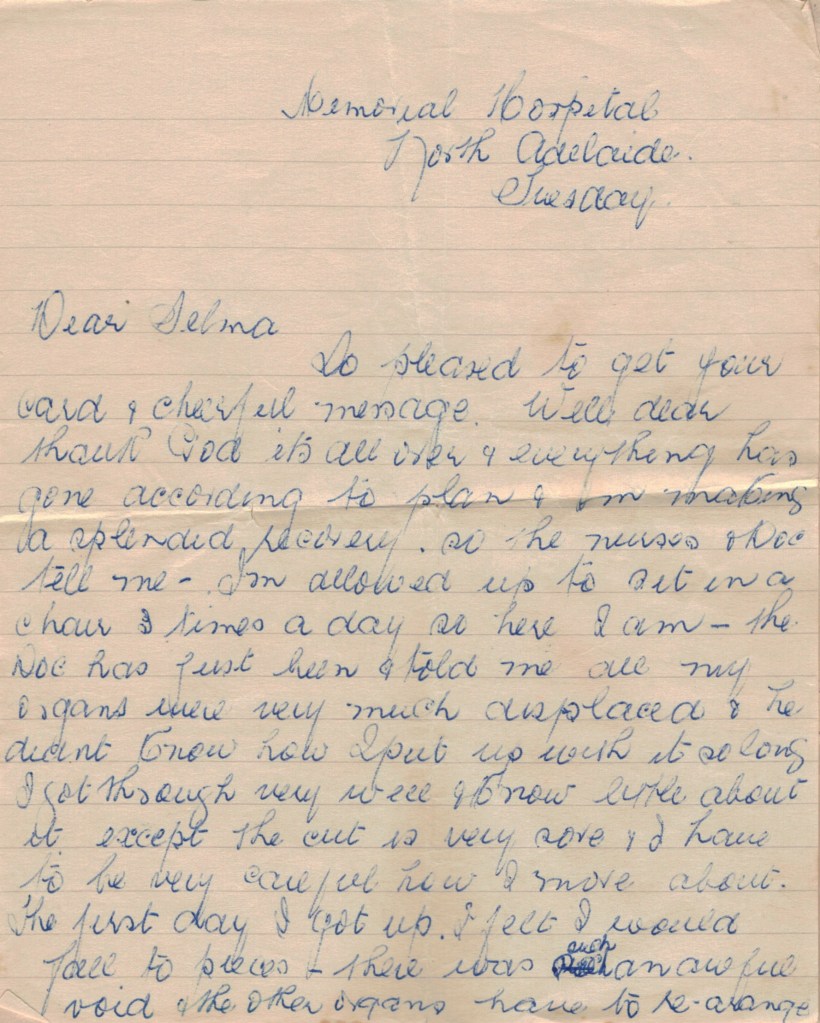 Memorial Hospital
North Adelaide.
Tuesday.
Dear Selma
So pleased to get your
card & cheerful message. Well dear
thank God its all over & everything has
gone according to plan & Im making
a splendid recovery. so the nurses & Doc
tell me - Im allowed up to sit in a
chair 3 times a day so here I am - the
Doc has just been & told me all my
organs were very much displaced & he
didnt know how I put up with it so long
I got through very well & know little about
it except the cut is very sore & I have
to be very careful how I move about.
The first day I got up. I felt I would
fall to pieces - there was such an aweful
void & the other organs have to re-arange